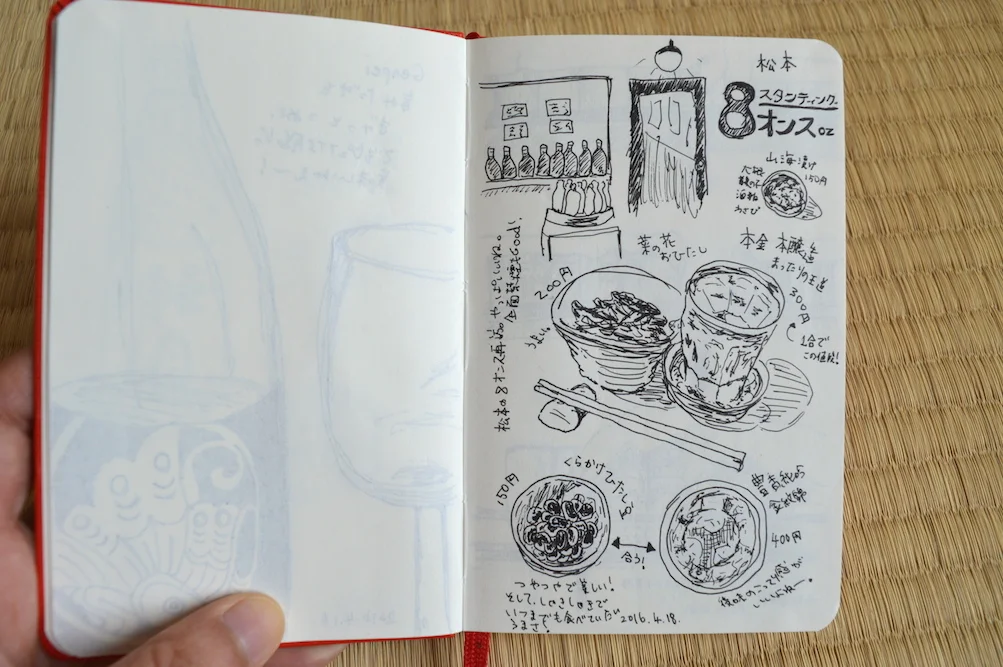 松本
8
スタンディング
オンス oz
山海漬け
150円
わさび
菜の花
おひたし
200円
本金 本醸造
まったりの王道
300円
1合で
この値段!
松本の8オンス再訪。やっぱいいね。
全面禁煙もGood!
くらかけひたし豆
150円
合う!
400円
つやつやで美しい!
そして、しゃきしゃきで
いつまでも食べていたい
うまさ!
2016.4.18.